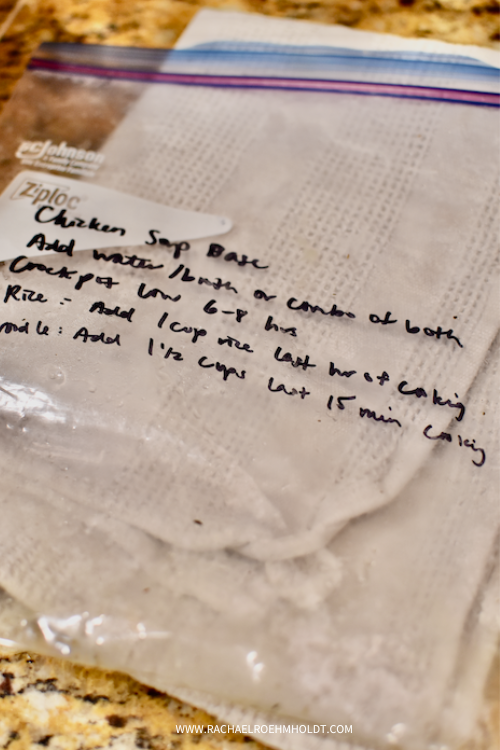 SC Johnson
A Family Company
Ziploc
Chicken Soup Base
Add water/broth or combo of both
Crockpot low 6-8 hrs
Rice: Add 1 cup rice last hr of cooking
oodle: Add 1 1/2 cups last 15 min cooking
WWW.RACHAELROEHMHOLDT.COM